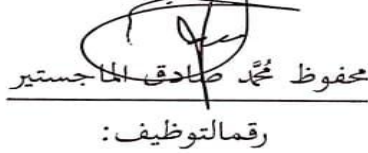 محفوظ مُحَمَّد صادق الماجستير
رقمالتوظيف: